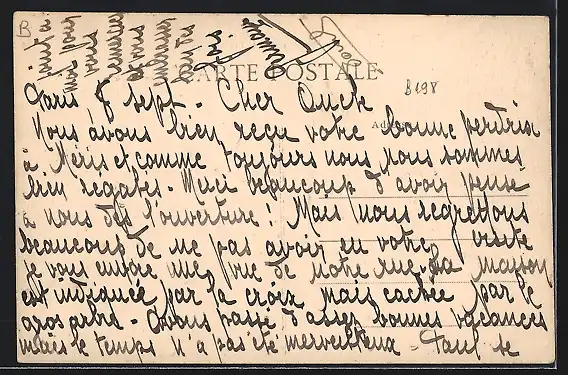 B
joint à
moi pour
vous
remercier
et vous
embrasser
bien des
fois
CARTE POSTALE
B198
Paris 8 sept - Cher Oncle
Nous avons bien reçu votre bonne perdrix
à Méru et comme toujours nous nous sommes
bien régalés - Merci beaucoup d'avoir pensé
à nous dès l'ouverture! Mais nous regrettons
beaucoup de ne pas avoir eu votre visite
je vous envoie une vue de notre rue. La maison
est indiquée par la croix mais cachée par le
gros arbre - Avons passé d'assez bonnes vacances
mais le temps n'a pas été merveilleux - Paul se